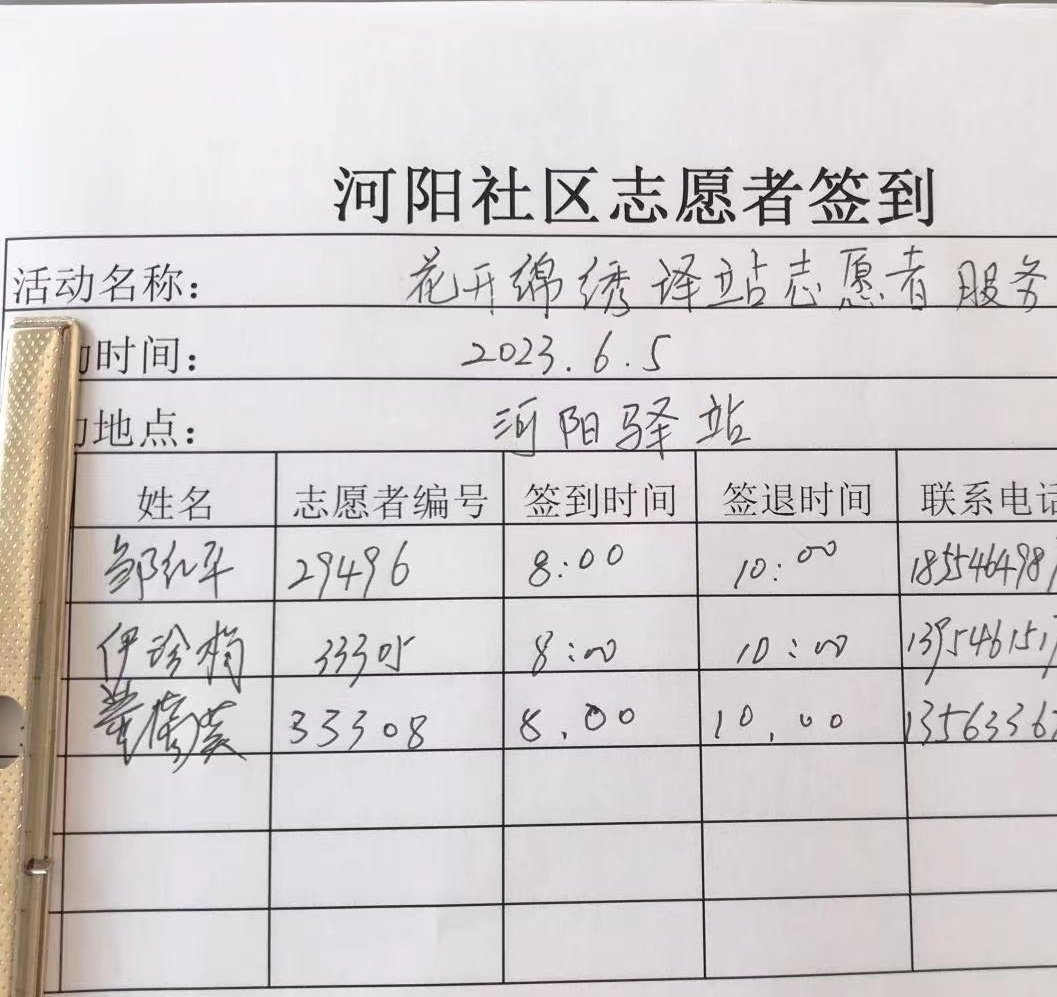 河阳社区志愿者签到
活动名称： 花开绵绣译站志愿者服务
时间： 2023.6.5
地点： 河阳驿站
姓名 志愿者编号 签到时间 签退时间 联系电话
邹红平 29496 8:00 10:00 1855464987
伊珍梅 33305 8:00 10:00 1395461517
33308 8.00 10.00 13563367